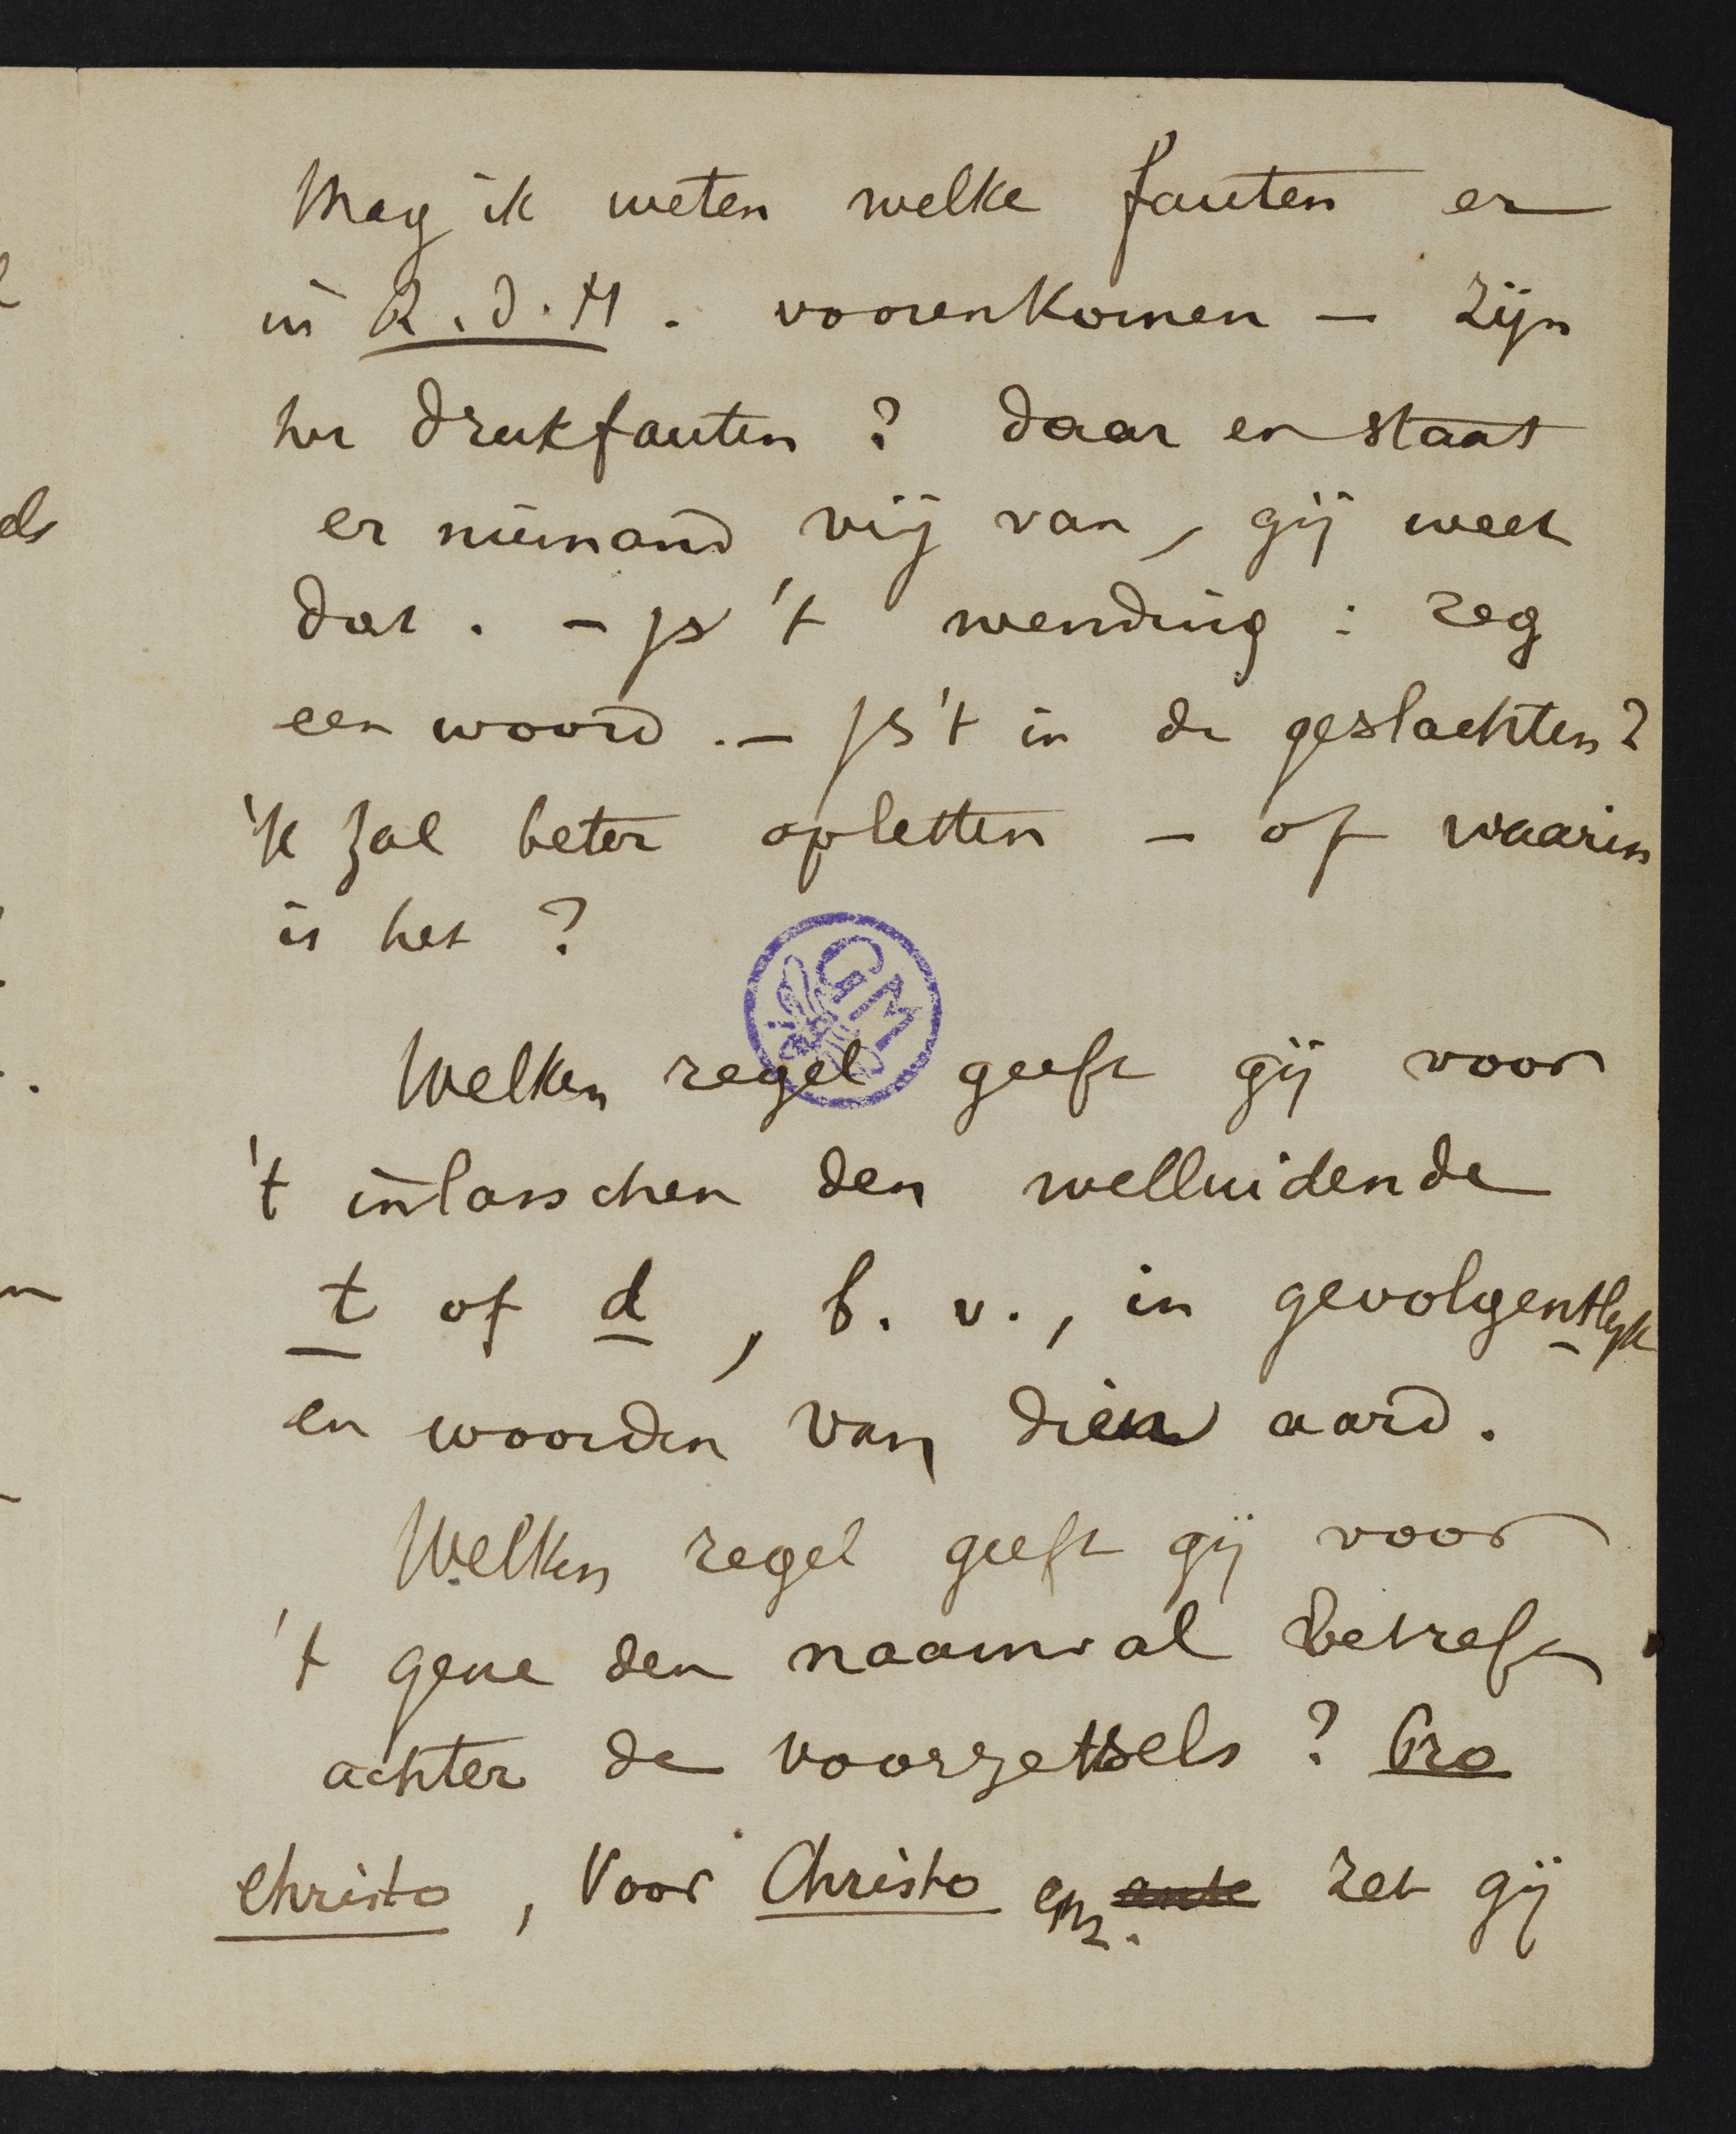 Mag ik weten welke fauten er
in R. d. H. voorenkomen — zijn
het drukfauten ? daar en staat
er niemand vrij van, gij weet
dat. — Js 't wending : zeg
een woord. — Js 't in de geslachten ?
'k zal beter opletten — of waarin
is het ?
GM
Welken regel geeft gij voor
't inlasschen den welluidende
t of d, b. v., in gevolgentlyk
en woorden van dien aard.
Welken regel geeft gij voor
't gene den naamval betreft
achter de voorzetsels ? Pro
Christo, Voor Christo enz. ante zet gij